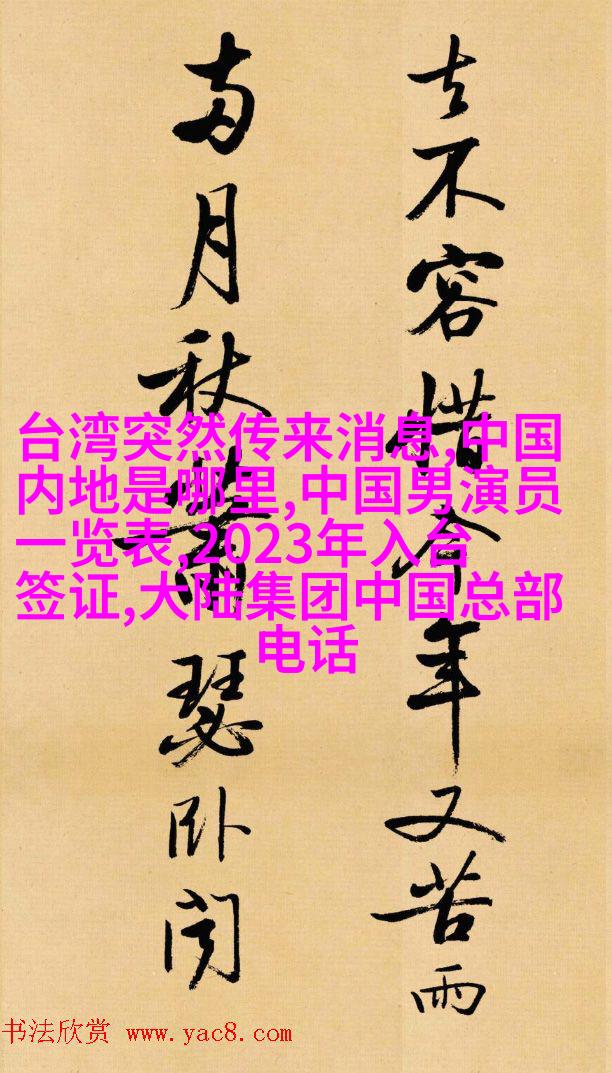 去不容惜今年又苦雨
兩月秋蕭瑟卧聞
台湾突然传来消息,中国
内地是哪里,中国男演员
一览表,2023年入台
签证,大陆集团中国总部
电话
书法欣赏 www.yac8.com